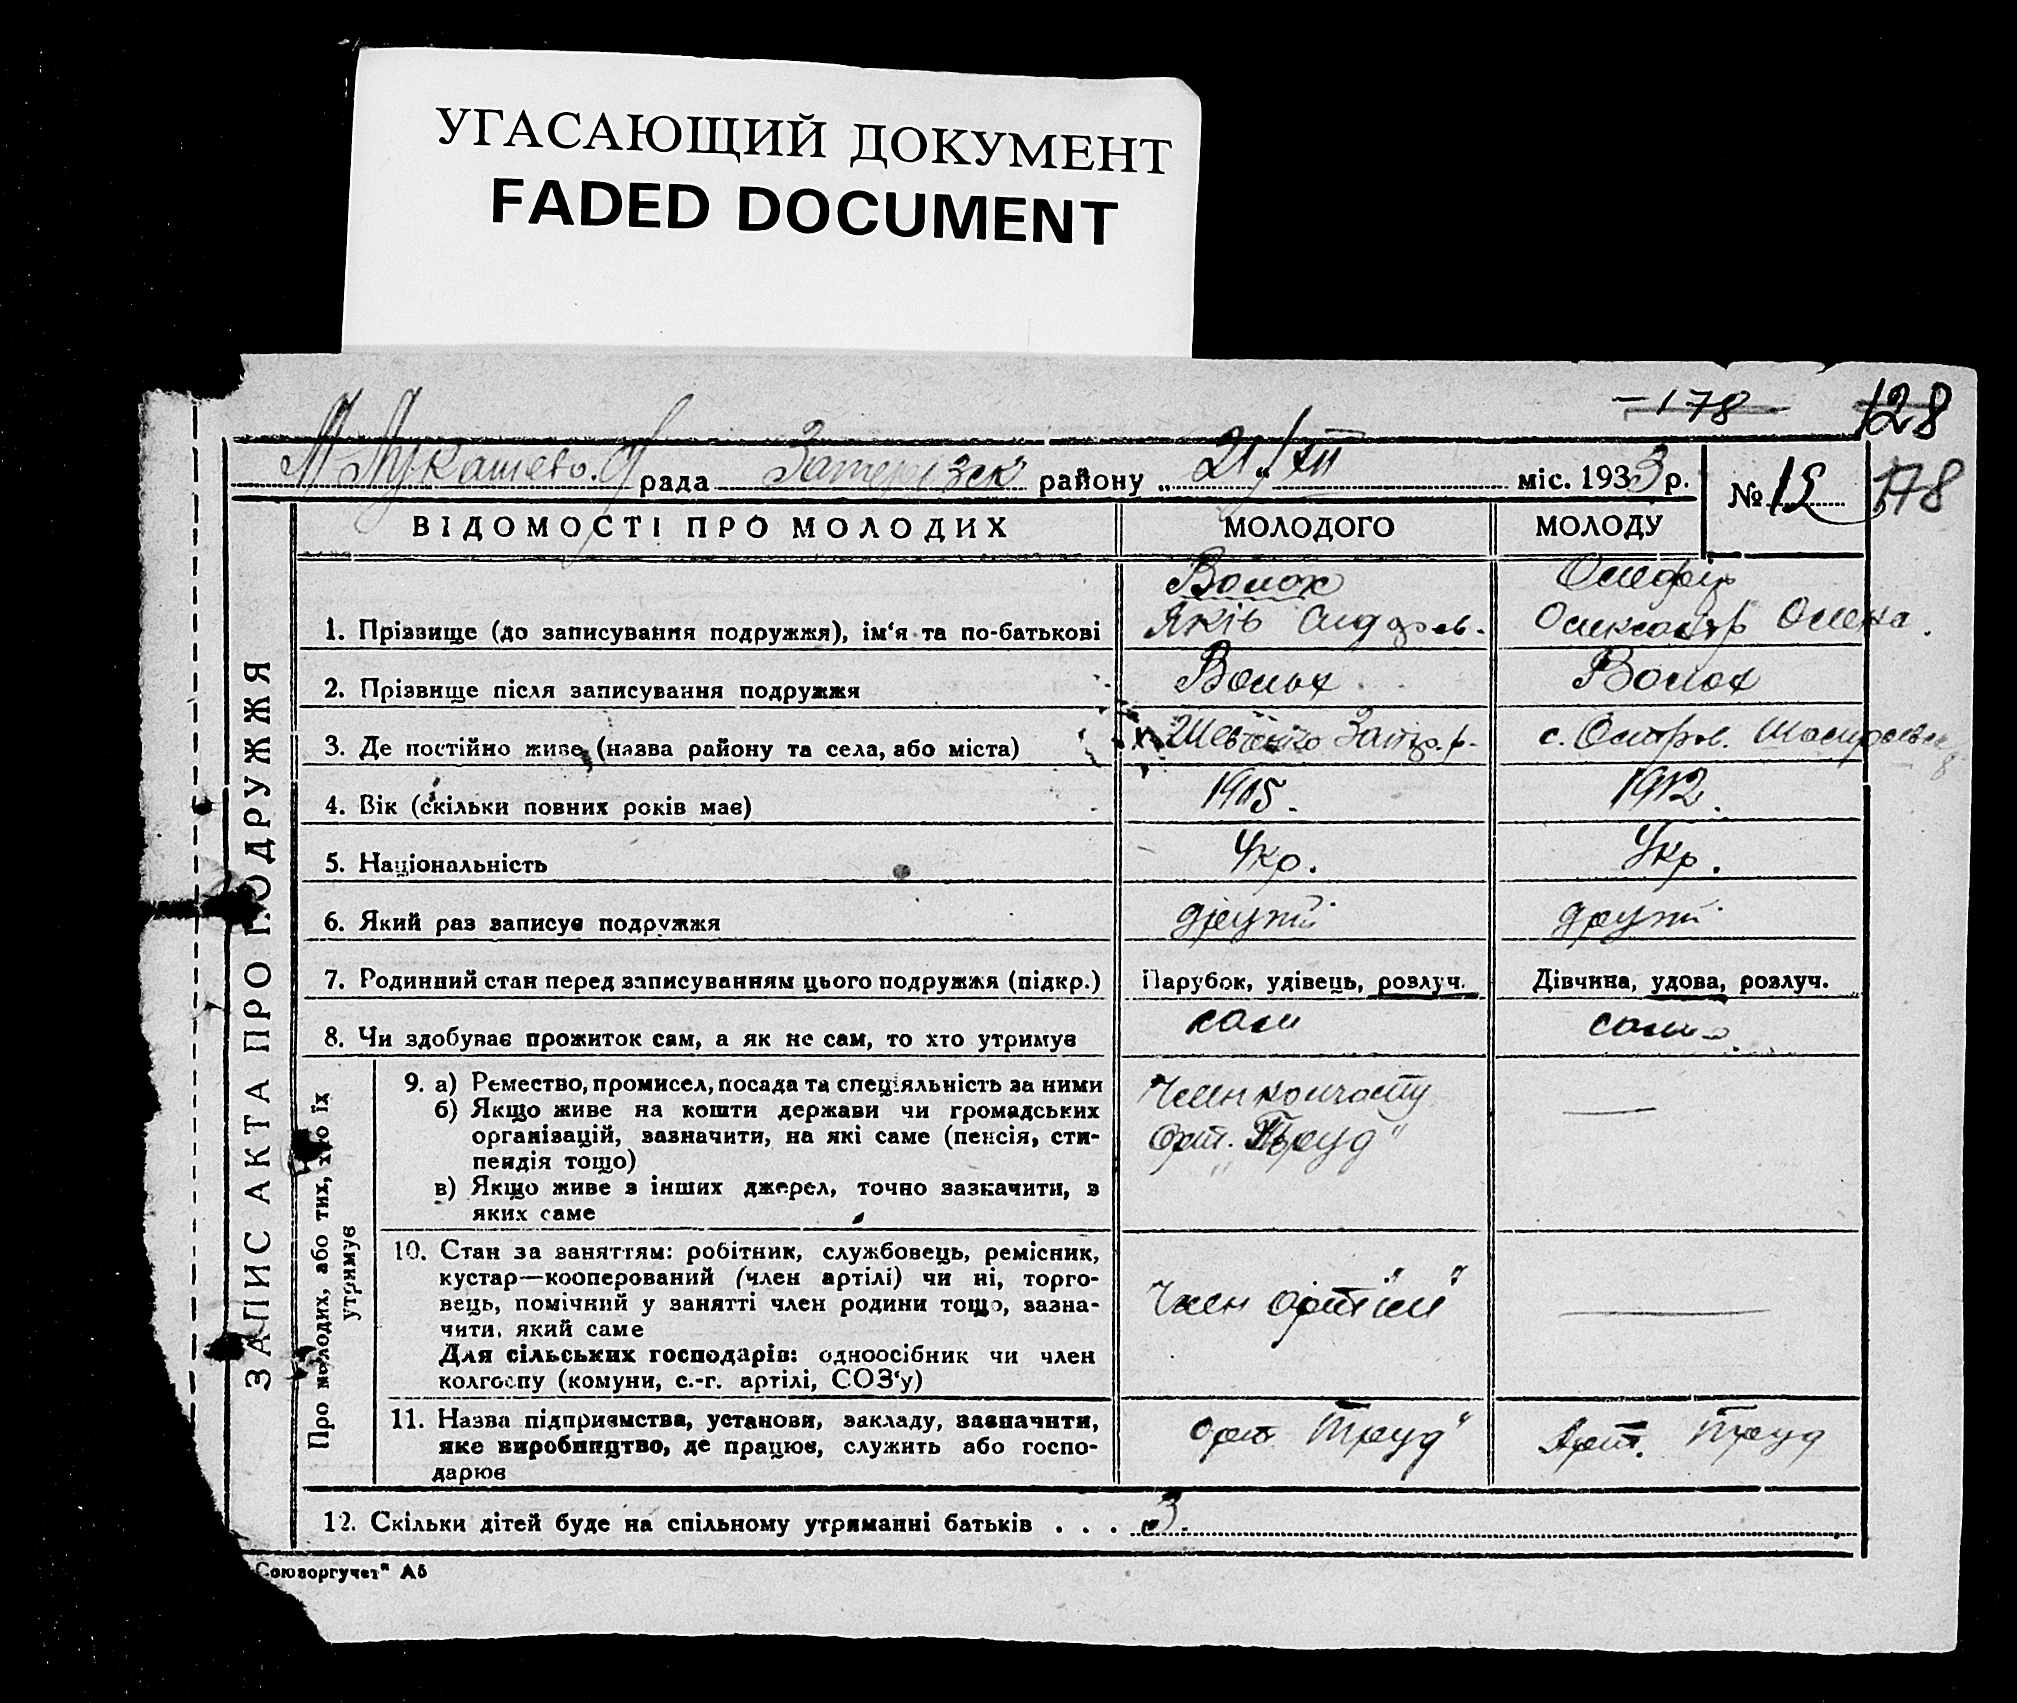 УГАСАЮЩИЙ ДОКУМЕНТ
FADED DOCUMENT
178 128
рада району 21/XII міс. 1933 р. № 15 178
ВІДОМОСТІ ПРО МОЛОДИХ МОЛОДОГО МОЛОДУ
ЗАПИС АКТА ПРО ПОДРУЖЖЯ
Волох
1. Прізвище (до записування подружжя), ім‘я та по-батькові Яків Сидоров. Олександр Олена.
2. Прізвище після записування подружжя Волох Волох
3. Де постійно живе, (назва району та села, або міста) Шевченко с. Остров.
4. Вік (скільки повних років має) 1905. 1912.
5. Національність Укр. Укр.
6. Який раз записує подружжя другий другий
7. Родинний стан перед записуванням цього подружжя (підкр.) Парубок, удівець, розлуч. Дівчина, удова, розлуч.
8. Чи здобуває прожиток сам, а як не сам, то хто утримує сам сама
Про молодих, або тих, хто їх
утримує
9. а) Ремество, промисел, посада та спеціяльність за ними Член колгоспу
б) Якщо живе на кошти держави чи громадських
організацій, зазначити, на які саме (пенсія, сти- арт. „Труд“
пендія тощо)
в) Якщо живе з інших джерел, точно зазначити, з
яких саме
10. Стан за заняттям: робітник, службовець, ремісник,
кустар—кооперований (член артілі) чи ні, торго-
вець, помічний у занятті член родини тощо, зазна- Член артілі
чити, який саме
Для сільських господарів: одноосібник чи член
колгоспу (комуни, с.-г. артілі, СОЗ‘у)
11. Назва підприємства, установи, закладу, зазначити, арт. Труд“ Арт. Труд
яке виробництво, де працює, служить або госпо-
дарює
12. Скільки дітей буде на спільному утриманні батьків . . . 3.
Союзоргучет" А5